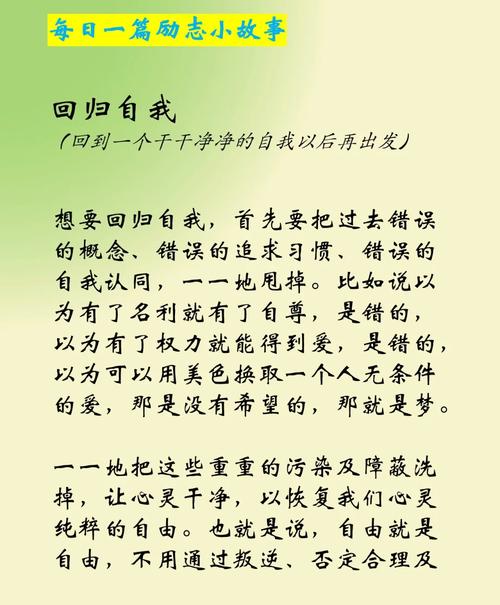 每日一篇励志小故事
回归自我
（回到一个干干净净的自我以后再出发）
想要回归自我，首先要把过去错误
的概念、错误的追求习惯、错误的
自我认同，一一地甩掉。比如说以
为有了名利就有了自尊，是错的，
以为有了权力就能得到爱，是错的，
以为可以用美色换取一个人无条件
的爱，那是没有希望的，那就是梦。
一一地把这些重重的污染及障蔽洗
掉，让心灵干净，以恢复我们心灵
纯粹的自由。也就是说，自由就是
自由，不用通过叛逆、否定合理及